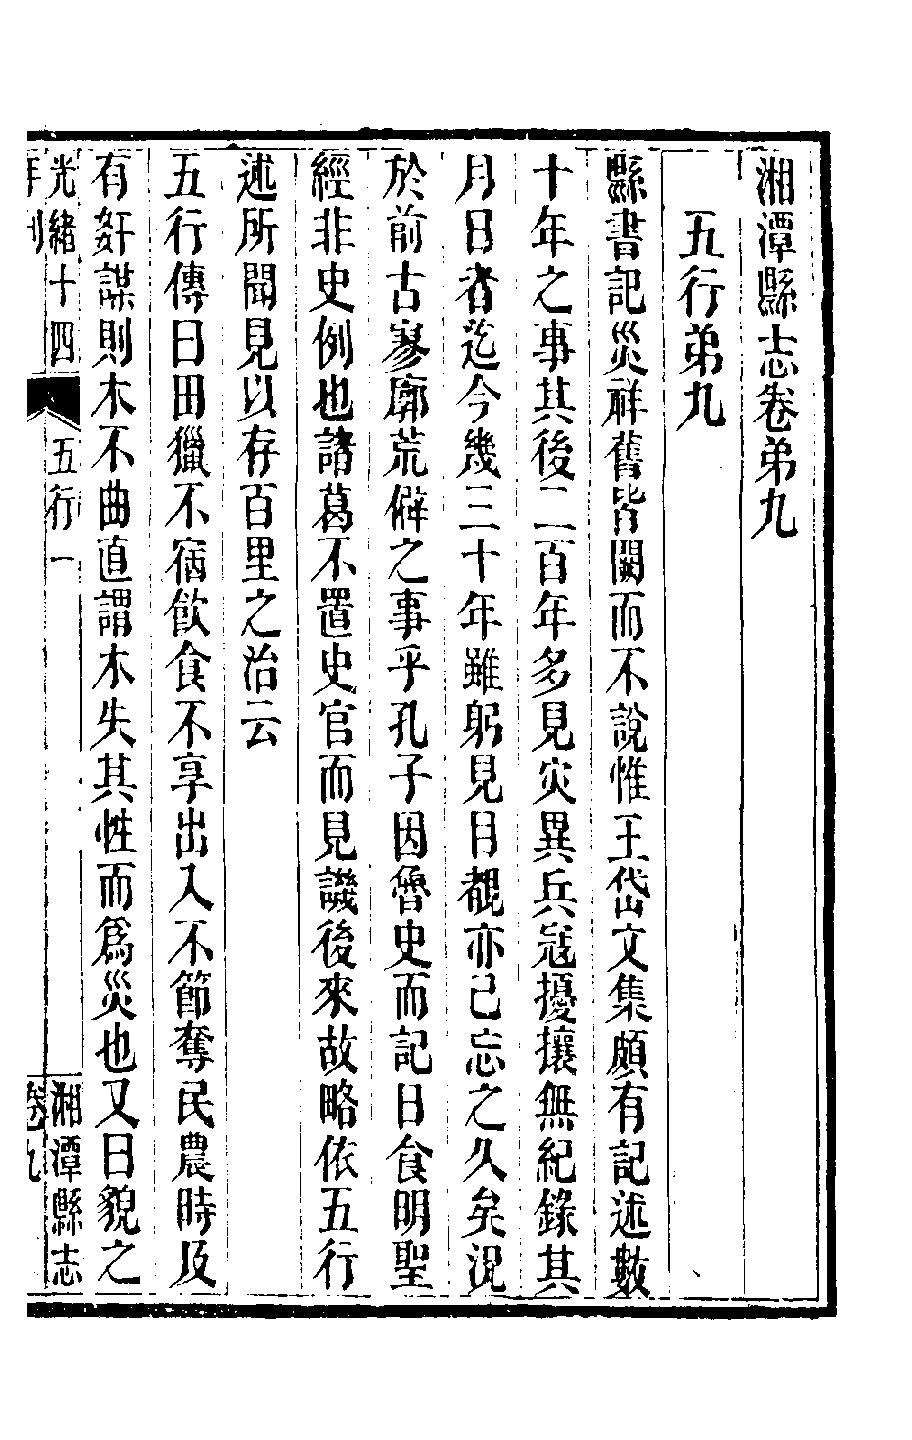 湘潭縣志卷弟九
五行弟九
縣書記災祥舊皆闕而不說惟王岱文集頗有記述數
十年之事其後二百年多見灾異兵寇擾攘無紀錄其
月日者迄今幾三十年雖躬見目覩亦已忘之久矣況
於前古寥廓荒僻之事乎孔子因魯史而記日食明聖
經非史例也諸葛不置史官而見譏後來故略依五行
述所聞見以存百里之治云
五行傳曰田獵不宿飲食不享出入不節奪民農時及
有姧謀則木不曲直謂木失其性而爲災也又曰貌之
光緒十四
五行一
湘潭縣志
年刊
卷九